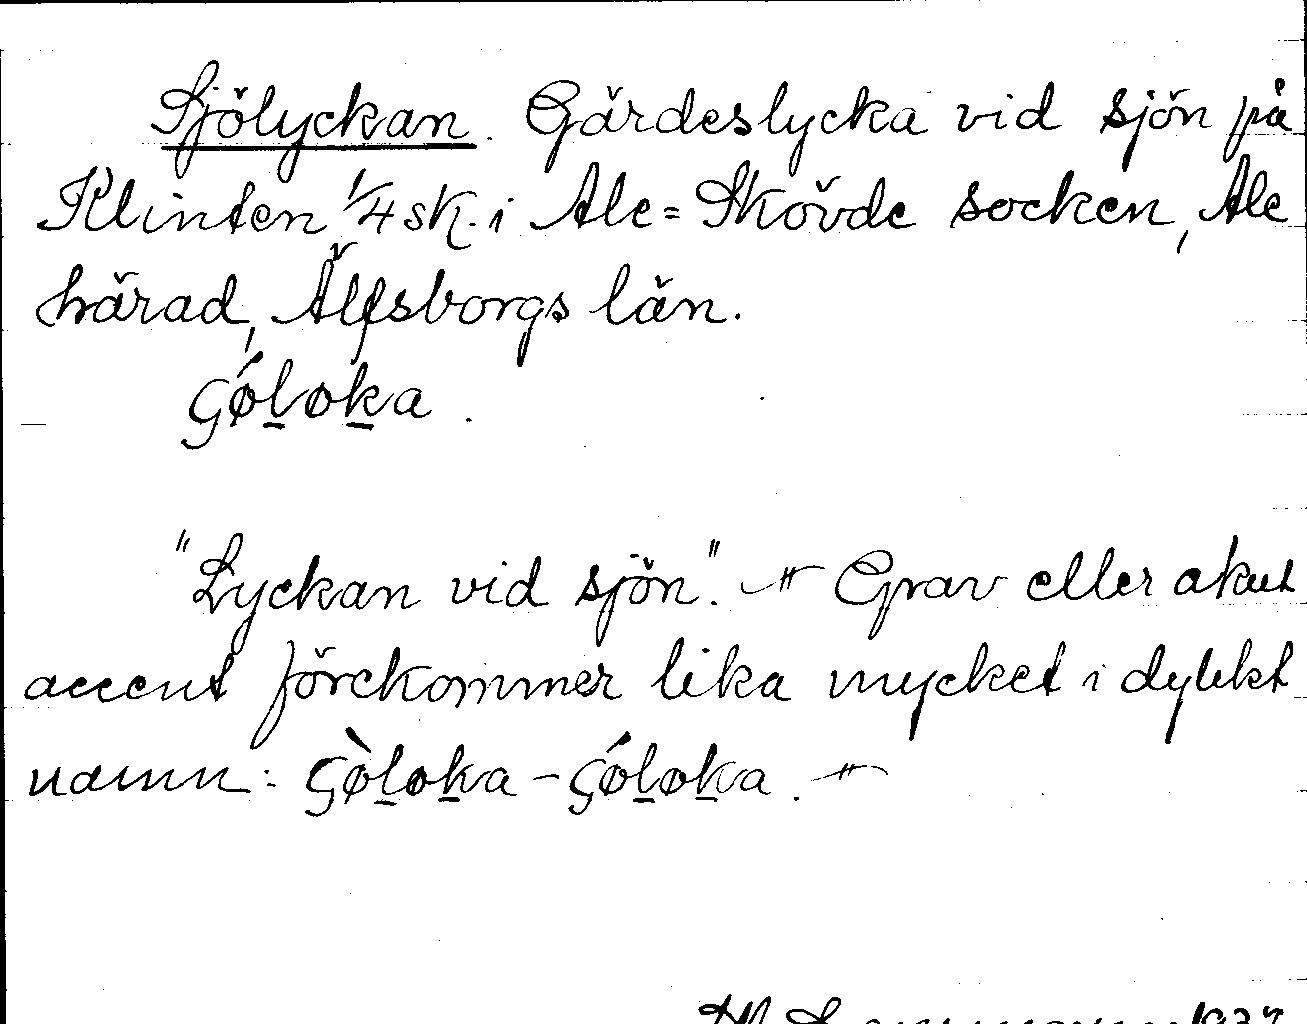 Sjölyckan. Gärdeslycka vid sjön på
Klinten 1/4 sk. i Ale=Skövde socken, Ale
härad, Älfsborgs län.
ʂǿl̲øk̲a.
"Lyckan vid sjön". — Grav eller akut
accent förekommer lika mycket i dylikt
namn: ʂø̀l̲øk̲a - ʂǿl̲øk̲a. —